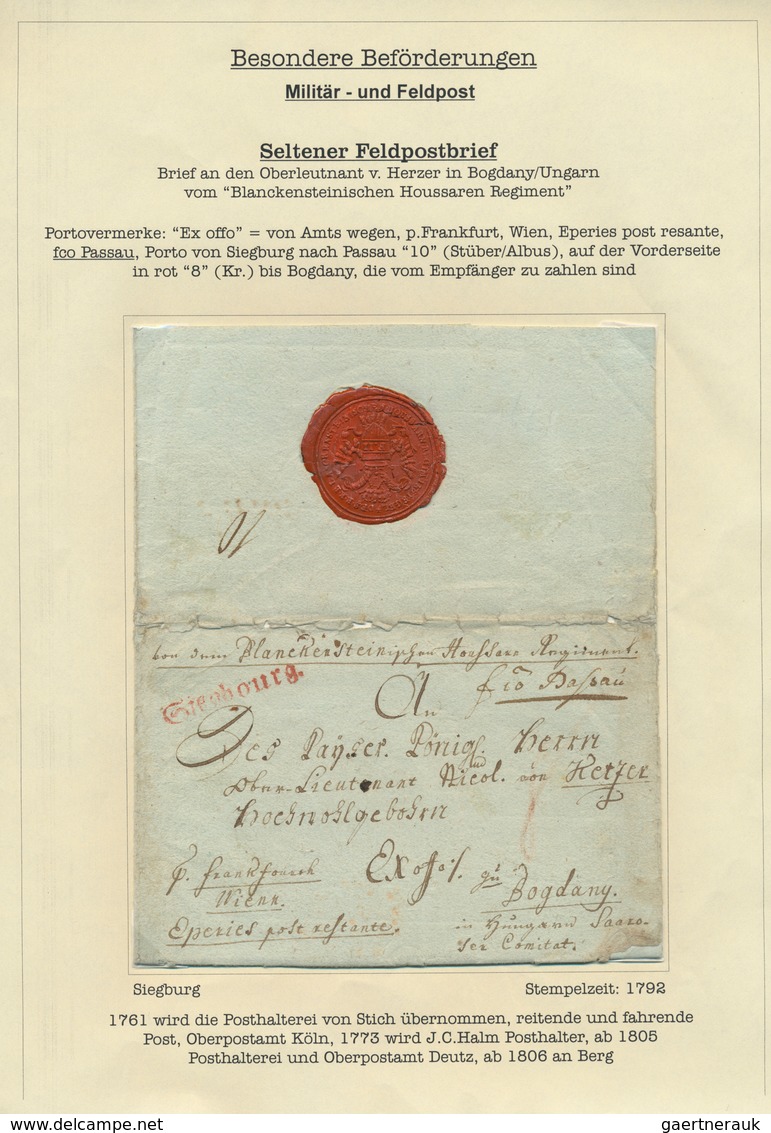 Besondere Beförderungen
Militär - und Feldpost
Seltener Feldpostbrief
Brief an den Oberleutnant v. Herzer in Bogdany/Ungarn
vom "Blanckensteinischen Houssaren Regiment"
Portovermerke: "Ex offo" = von Amts wegen, p.Frankfurt, Wien, Eperies post resante,
fco Passau, Porto von Siegburg nach Passau "10" (Stüber/Albus), auf der Vorderseite
in rot "8" (Kr.) bis Bogdany, die vom Empfänger zu zahlen sind
von dem Blanckensteinischen Houssare Regiment.
Siegbourg.
fco Passau
An
Des Kayser. Königl. Herrn
Ober-Lieutenant Nicol. von Herzer
Hochwohlgebohrn
p. Franckfourth
Exoffo
zu
Wienn.
Bogdany.
Eperies post restante.
in Hungarn Saaro-
ser Comitat.
Siegburg
Stempelzeit: 1792
1761 wird die Posthalterei von Stich übernommen, reitende und fahrende
Post, Oberpostamt Köln, 1773 wird J.C.Halm Posthalter, ab 1805
Posthalterei und Oberpostamt Deutz, ab 1806 an Berg
DELCAMPE.net
gaertnerauk